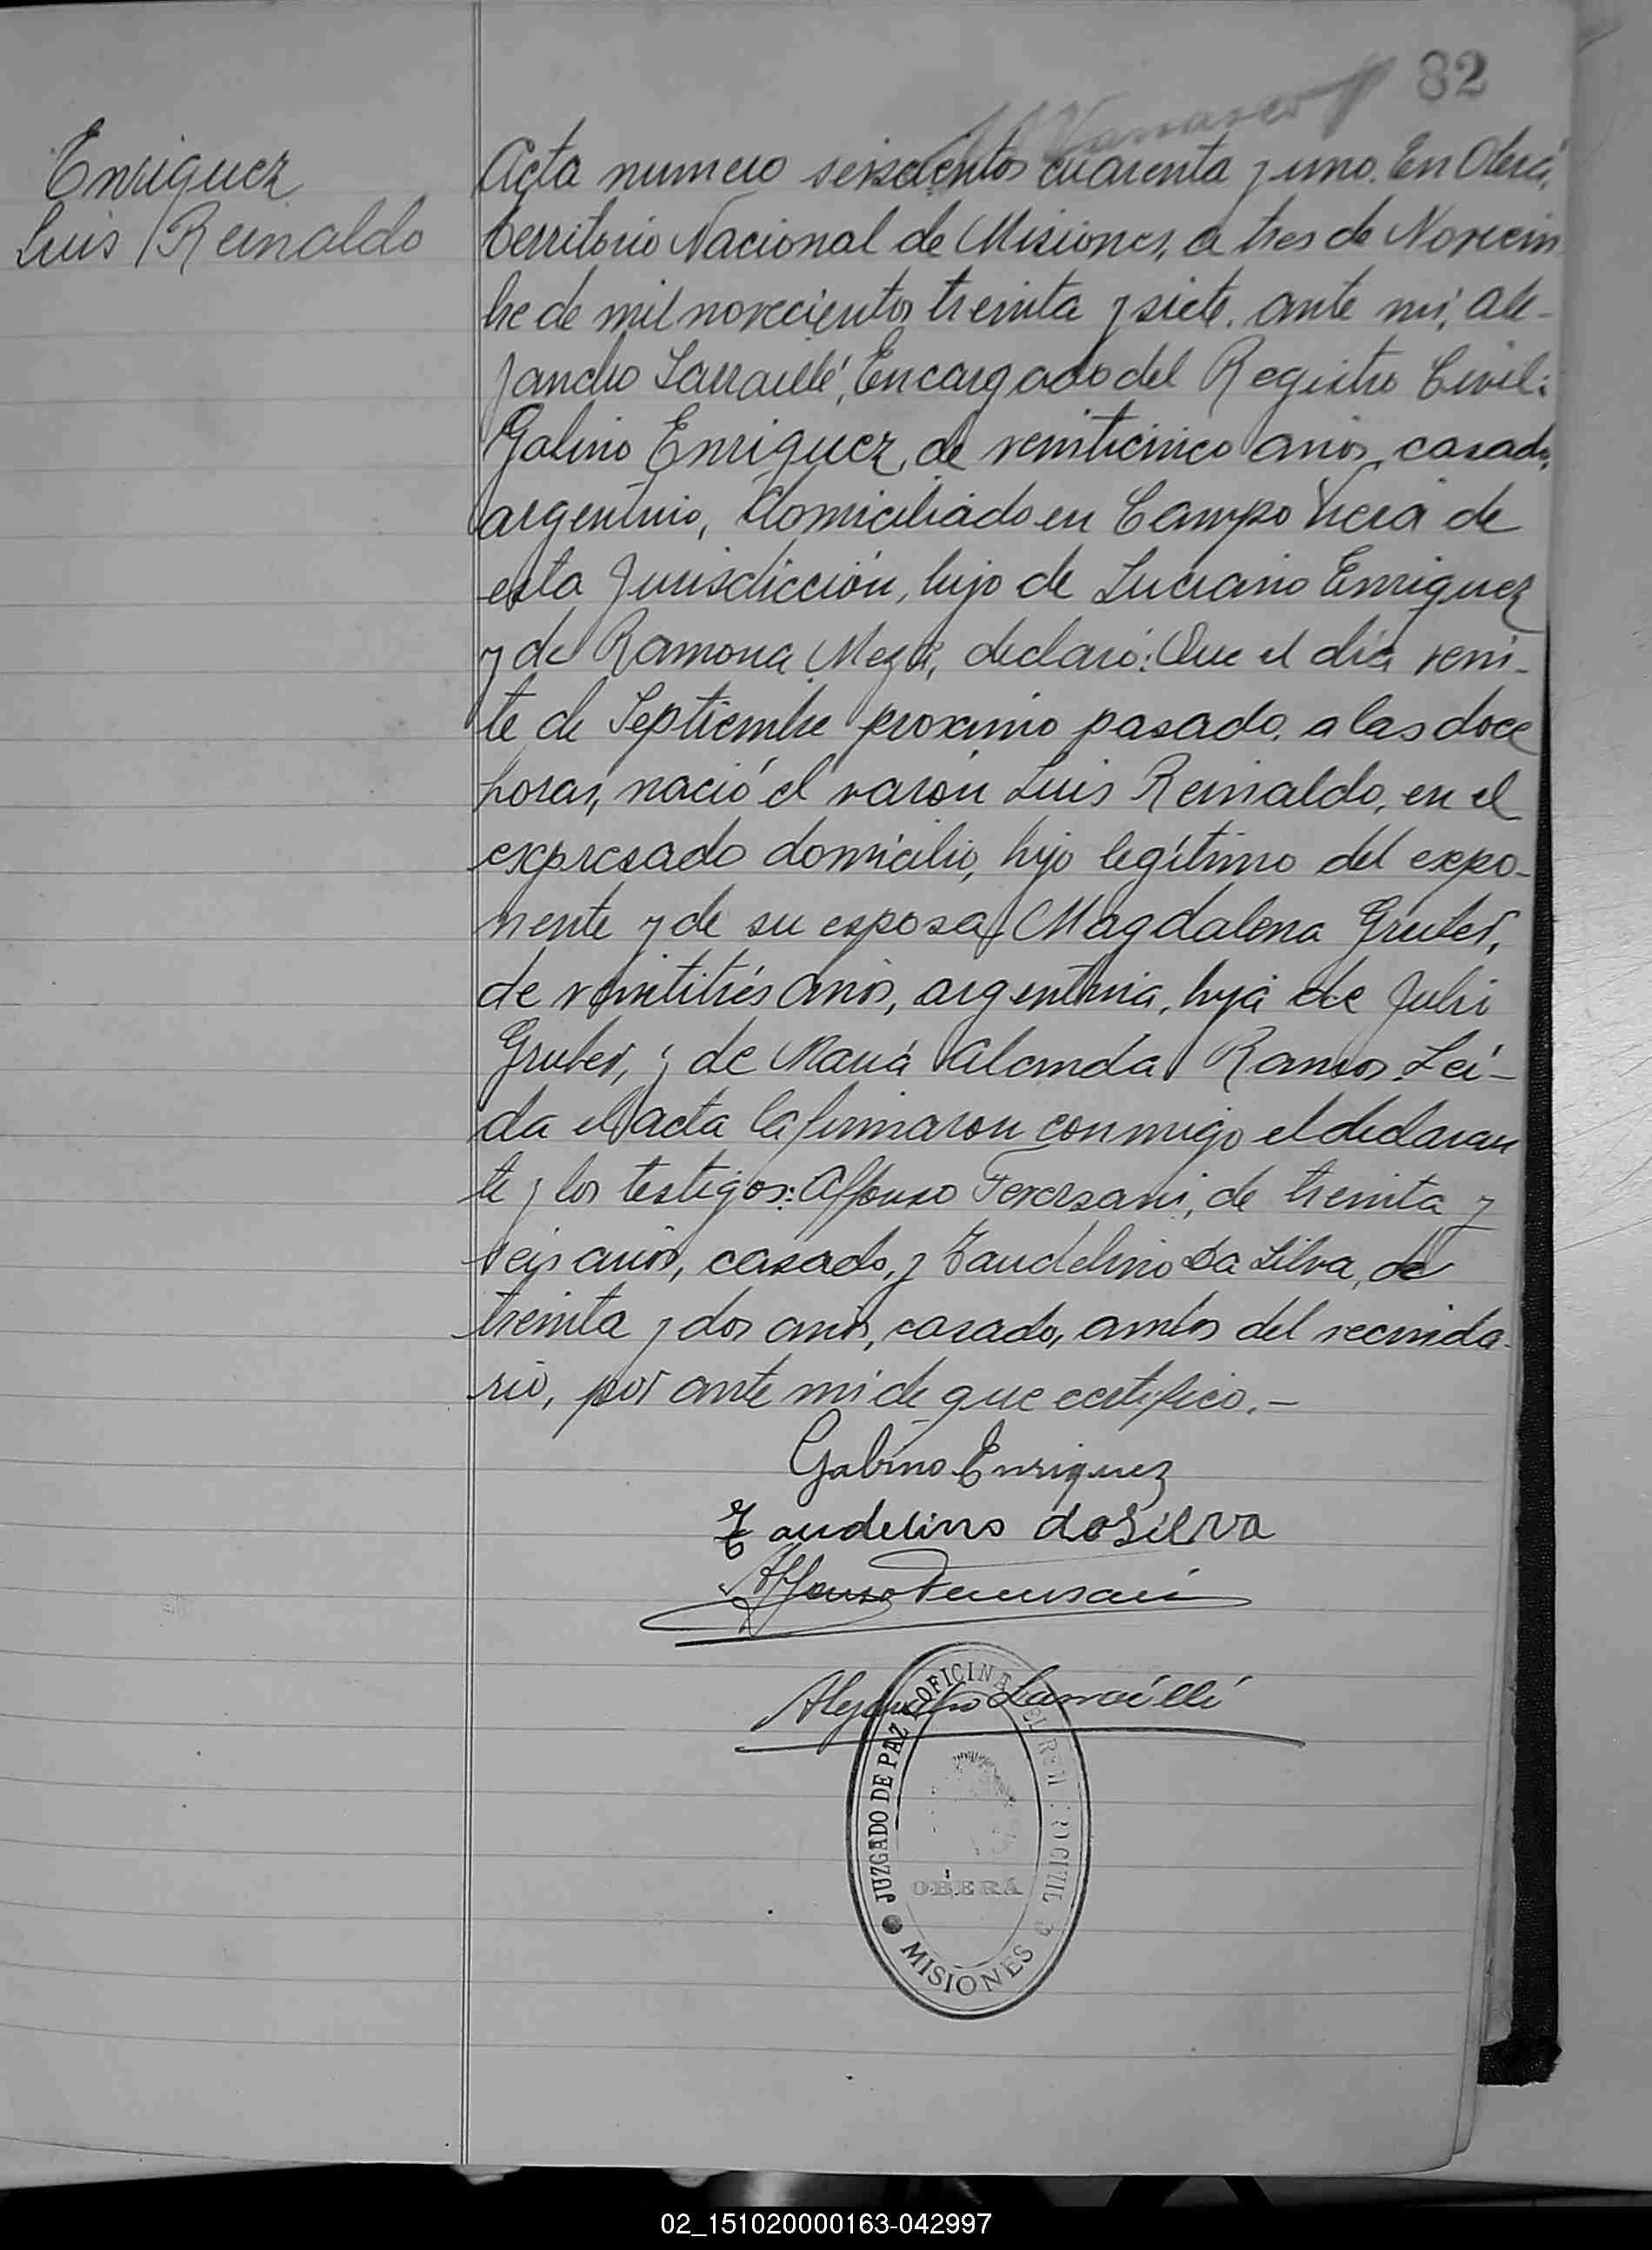 82
Enriquez
Luis Reinaldo
Acta numero seiscientos cuarenta y uno. En Oberá,
territorio Nacional de Misiones, a tres de Noviem
bre de mil novecientos treinta y siete. ante mi, Ale-
jandro Larraillé, Encargado del Registro Civil:
Gabino Enriquez, de veinticinco años, casado,
argentino, domiciliado en Campo Viera de
esta Jurisdicción, hijo de Luciano Enriquez
y de Ramona declaró: Que el día vein-
te de Septiembre proximo pasado, a las doce
horas, nació el varón Luis Reinaldo, en el
expresado domicilio, hijo legítimo del expo-
nente y de su esposa Magdalena Gruber,
de veintitrés años, argentina, hija de Julio
Gruber, y de María Ramos. Leí-
da el acta la firmaron conmigo el declaran
te y los testigos: Affonso de treinta y
seis años, casado, y Taudelino Da Silva, de
treinta y dos años, casado, ambos del vecinda-
rio, por ante mi de que certifico.-
Gabino Enriquez
Taudelino da Silva
Affonso
Alejandro Larraillé
JUZGADO DE PAZ OFICINA DEL REG CIVIL
OBERÁ
MISIONES
02_151020000163-042997